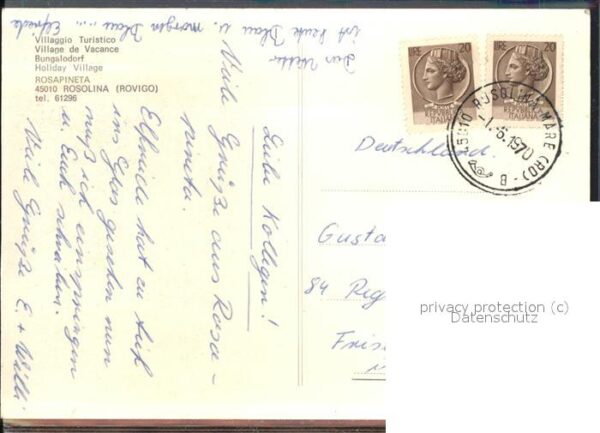 Villaggio Turistico
Village de Vacance
Bungalodorf
Holiday Village
ROSAPINETA
45010 ROSOLINA (ROVIGO)
tel. 61296
Liebe Kollegen!
Viele Grüße aus Rosa-
pineta.
Elfriede hat zu tief
ins Glas gesehen nun
muß ich einspringen
u. Euch schreiben.
Viele Grüße E + Willi
ist heute Blau u. morgen Blau .... Elfriede
LIRE 20
REPUBBLICA ITALIANA
LIRE 20
REPUBBLICA ITALIANA
45010 ROSOLINA MARE (RO) - B
-1.6.1970
Deutschland.
Gusta
84 Reg
Fris
privacy protection (c)
Datenschutz